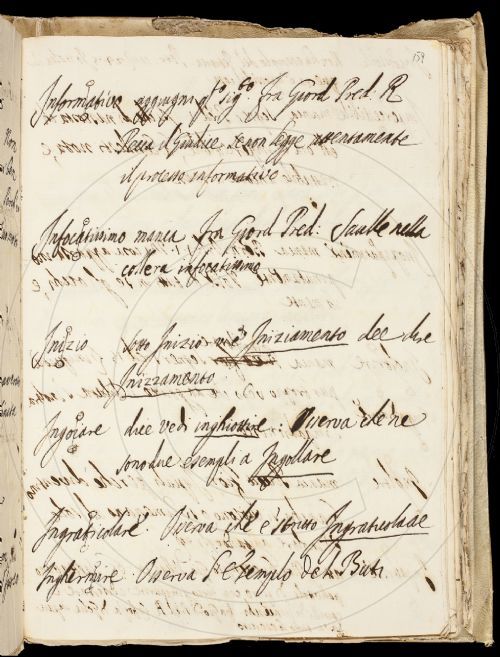 159
Informativo aggiugni q.to sig.to Fra Giord. Pred. R
Pecca il Giudice se non legge attentamente
il processo informativo
Infocatissimo manca Fra Giord Pred:
collera infocatissimo
Inizio sotto Inizio v'è Iniziamento dee dire
Inizzamento
Ingoiare dice vedi inghiottire. Osserva che ne
sono due esempli a Ingollare
Ingraticolare. Osserva che è scritto Ingraticolare
Osserva l'Esemplo del But.